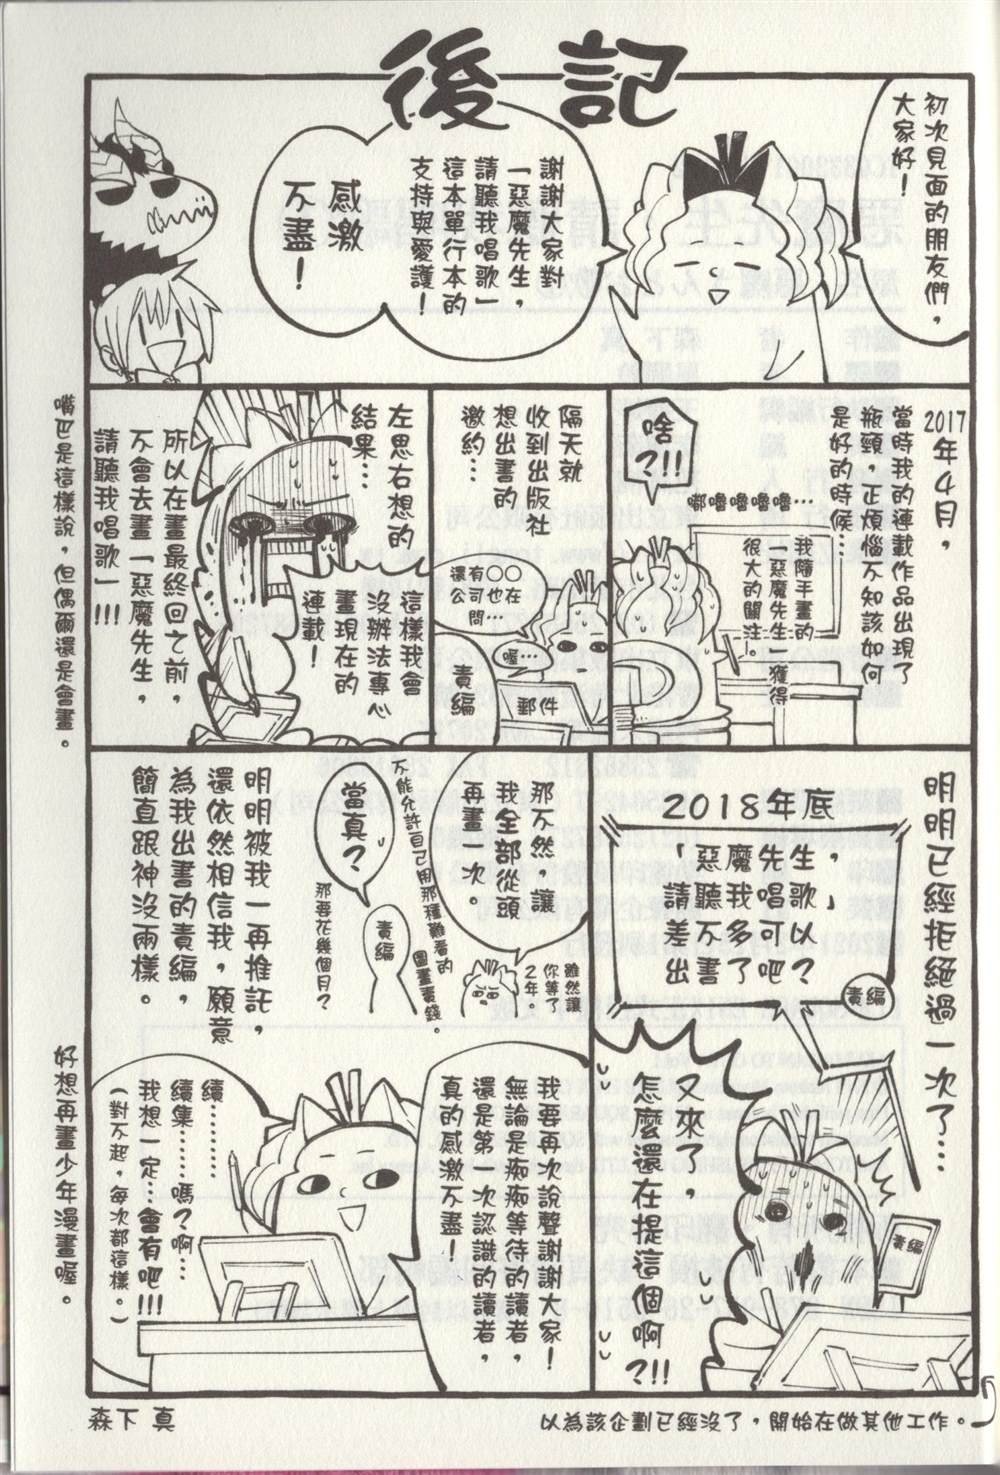 後記
初次見面的朋友們，
大家好！
謝謝大家對
「惡魔先生，
請聽我唱歌」
這本單行本的
支持與愛護！
感激
不盡！
2017年4月，
當時我的連載作品出現了
瓶頸，正煩惱不知該如何
是好的時候…
嘟嚕嚕嚕嚕…
我隨手畫的
「惡魔先生」獲得
很大的關注。
啥?!!
隔天就
收到出版社
想出書的
邀約…
還有〇〇
公司也在
問…
喔…
責編
郵件
左思右想的
結果…
這樣我會
沒辦法專心
畫現在的
連載！
所以在畫最終回之前，
不會去畫「惡魔先生，
請聽我唱歌」!!!
嘴巴是這樣說，但偶爾還是會畫。
明明已經拒絕過一次了…
2018年底
「惡魔先生，
請聽我唱歌」
差不多可以
出書了吧？
責編
又來了，
怎麼還在提這個啊?!!
責編
以為該企劃已經沒了，開始在做其他工作。
那不然，讓
我全部從頭
再畫一次。
雖然讓
你等了
2年。
不能允許自己用那種難看的
圖畫賣錢。
當真？
那要花幾個月？
責編
明明被我一再推託，
還依然相信我，願意
為我出書的責編，
簡直跟神沒兩樣。
我要再次說聲謝謝大家！
無論是痴痴等待的讀者，
還是第一次認識的讀者，
真的感激不盡！
續………
續集………嗎？啊…
我想一定…會有吧!!!
（對不起，每次都這樣。）
好想再畫少年漫畫喔。
森下 真